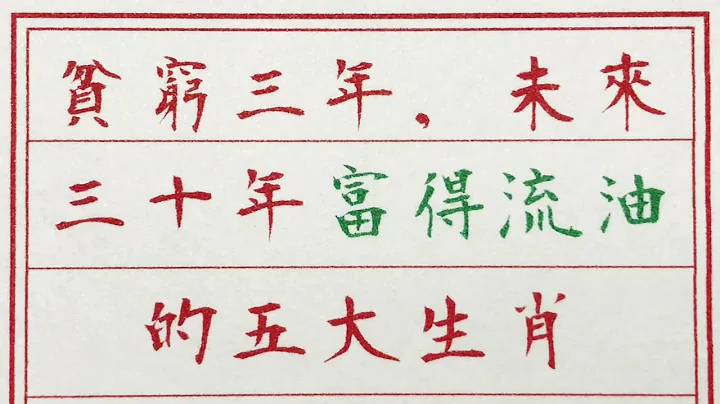 貧窮三年，未來
三十年富得流油
的五大生肖